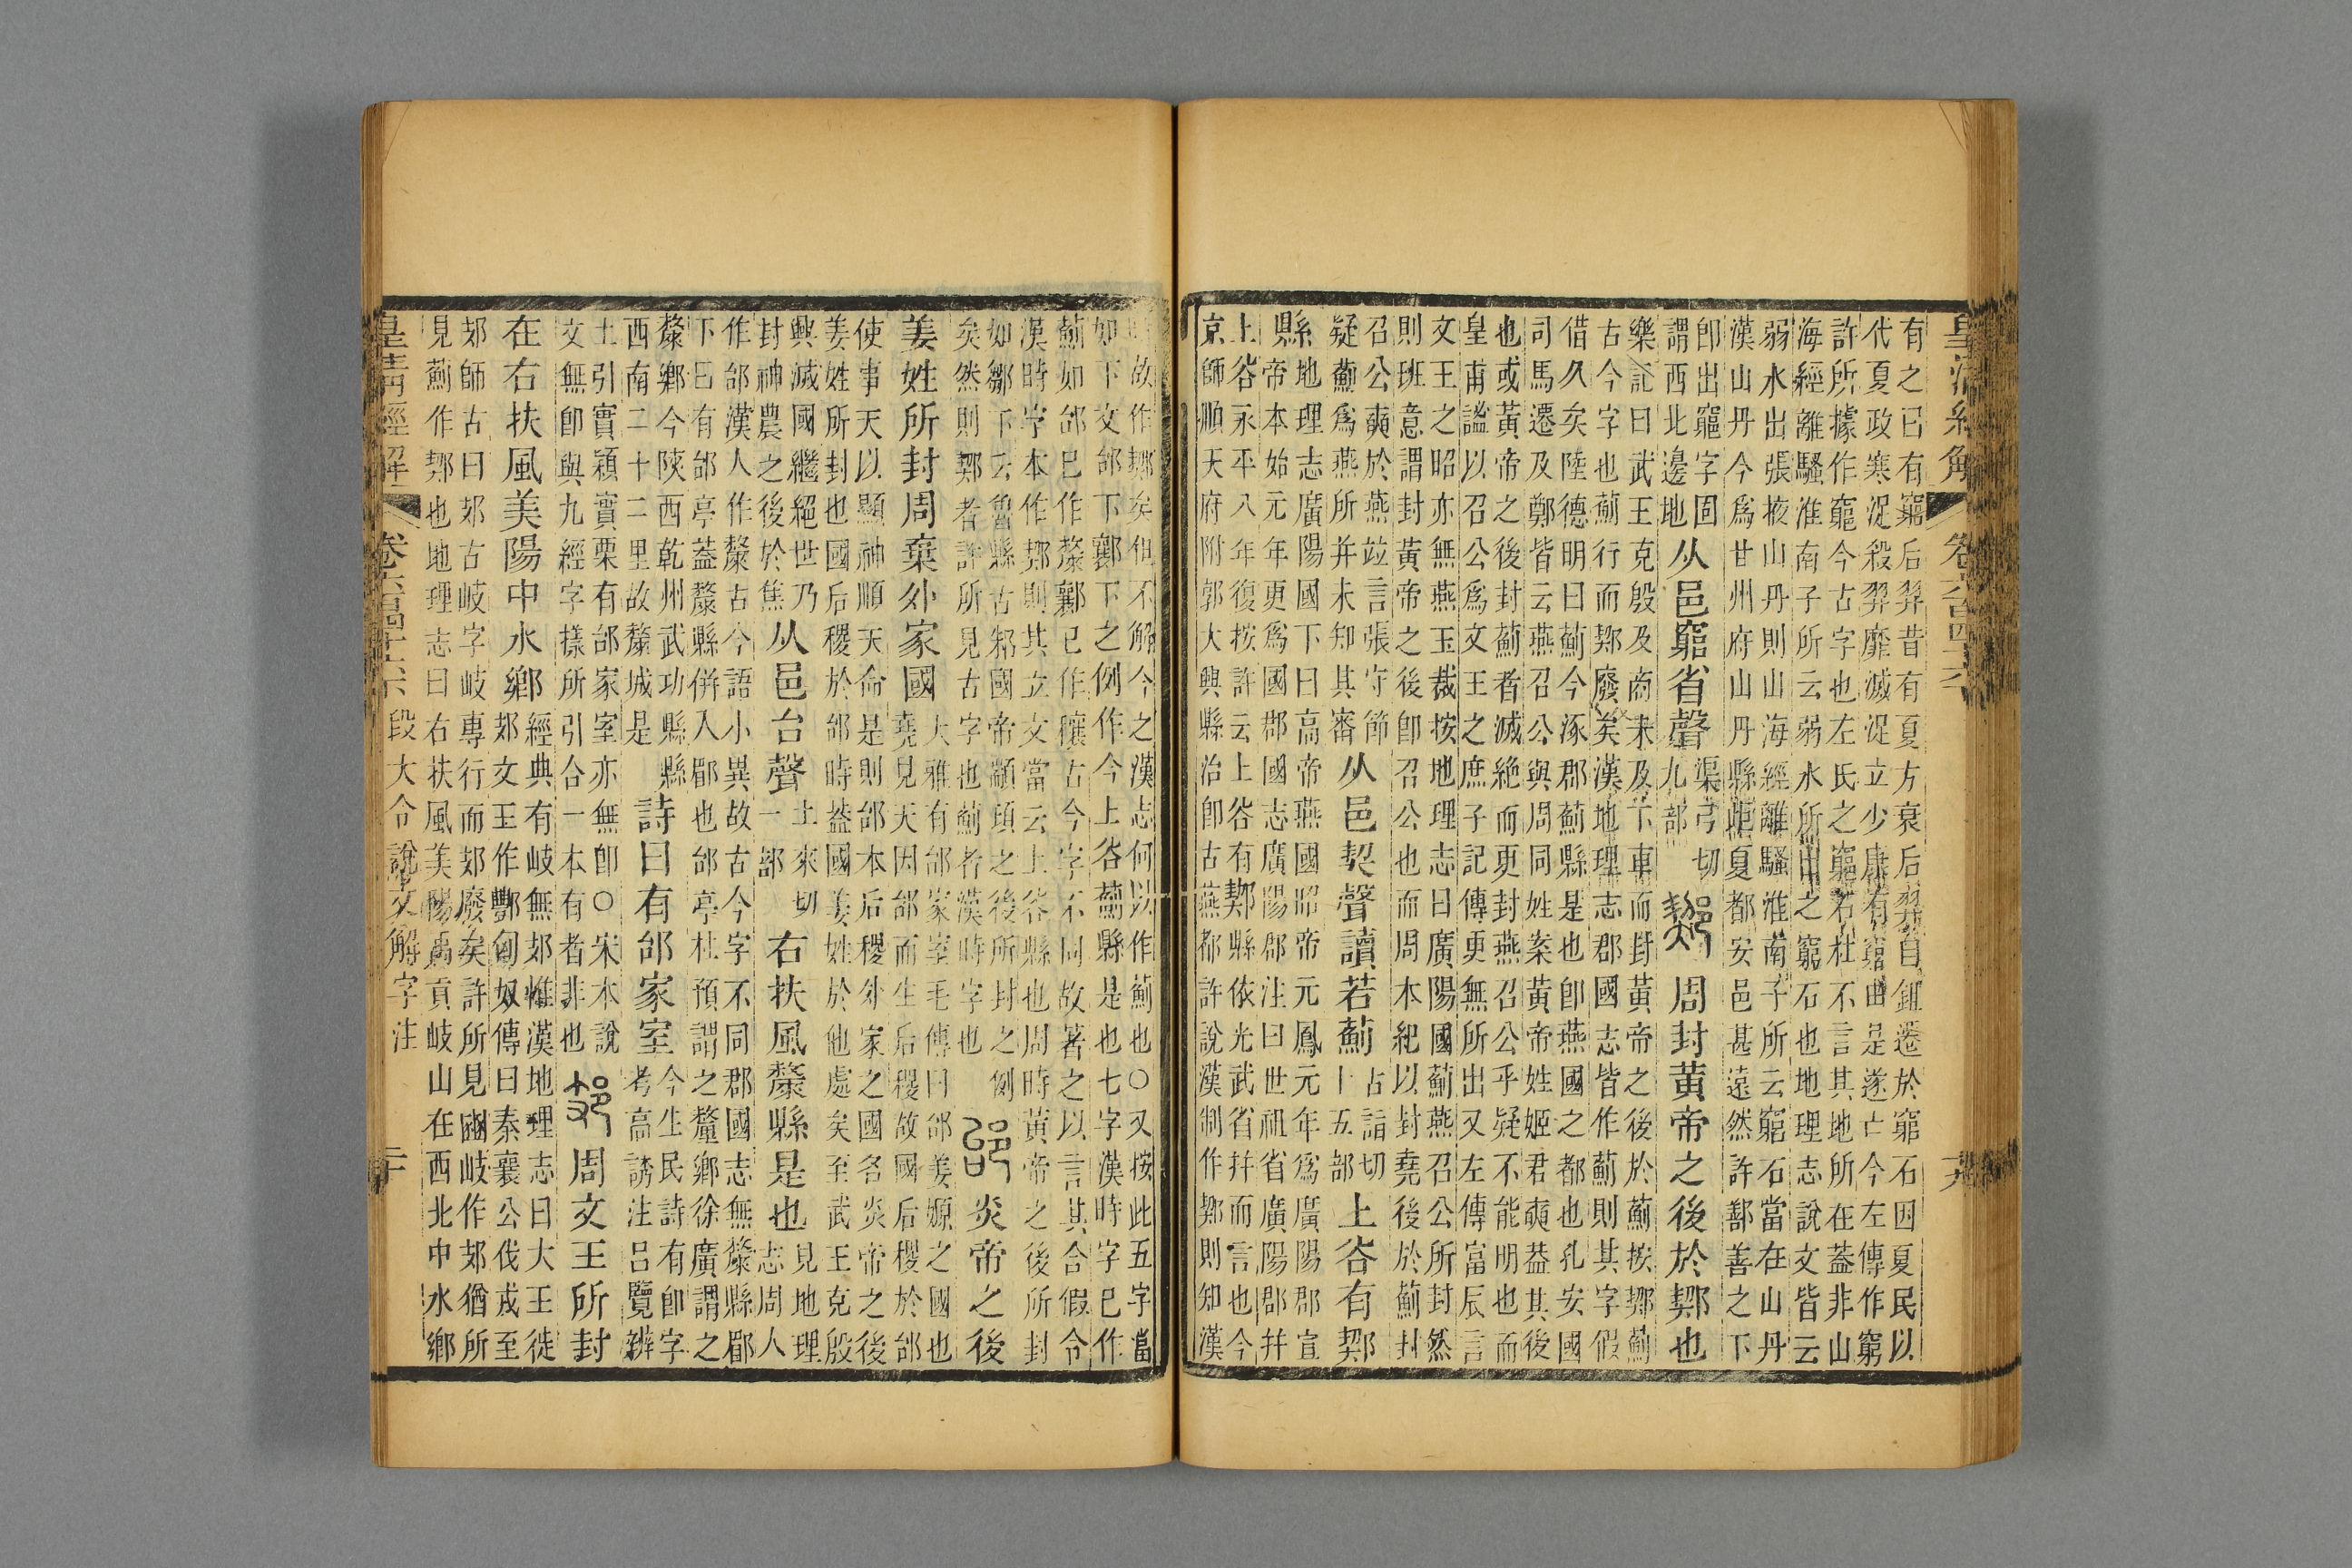 皇清經解 卷六百四十六 十九
有之已有窮后羿昔有夏方衰后羿自鉏遷於窮石因夏民以
代夏政寒浞殺羿靡滅浞立少康有窮由是遂亡今左傳作窮
許所據作竆今古字也左氏之竆若杜不言其地所在蓋非山
海經離騷淮南子所云弱水所出之窮石也地理志說文皆云
弱水出張掖山丹則山海經離騷淮南子所云窮石當在山丹
漢山丹今爲甘州府山丹縣距夏都安邑甚遠然許鄯善之下
卽出竆字固
謂西北邊地
从邑窮省聲
渠弓切
九部
周封黃帝之後於鄚也
樂記曰武王克殷及商未及下車而封黃帝之後於薊按鄚薊
古今字也薊行而鄚廢矣漢地理志郡國志皆作薊則其字假
借久矣陸德明曰薊今涿郡薊縣是也卽燕國之都也孔安國
司馬遷及鄭皆云燕召公與周同姓案黃帝姓姬君奭蓋其後
也或黃帝之後封薊者滅絕而更封燕召公乎疑不能明也而
皇甫謐以召公爲文王之庶子記傳更無所出又左傳富辰言
文王之昭亦無燕玉裁按地理志曰廣陽國薊燕召公所封然
則班意謂封黃帝之後卽召公也而周本紀以封堯後於薊封
召公奭於燕竝言張守節
疑薊爲燕所并未知其審
从邑契聲讀若薊
古詣切
十五部
上谷有鄚
縣
地理志廣陽國下曰高帝燕國昭帝元鳳元年爲廣陽郡宣
帝本始元年更爲國郡國志廣陽郡注曰世祖省廣陽郡并
上谷永平八年復按許云上谷有鄚縣依光武省并而言也今
京師順天府附郭大興縣治卽古燕都許說漢制作鄚則知漢
時故作鄚矣但不解今之漢志何以作薊也〇又按此五字當
如下文邰下酇下之例作今上谷薊縣是也七字漢時字已作
薊如邰已作斄酇已作穰古今字不同故著之以言其合假令
漢時字本作鄚則其立文當云上谷縣也周時黃帝之後所封
如鄒下云魯縣古邾國帝顓頊之後所封之例
矣然則鄚者許所見古字也薊者漢時字也
炎帝之後
姜姓所封周棄外家國
大雅有邰家室毛傳曰邰姜嫄之國也
堯見天因邰而生后稷故國后稷於邰
使事天以顯神順天命是則邰本后稷外家之國名炎帝之後
姜姓所封也國后稷於邰時蓋國姜姓於他處矣至武王克殷
興滅國繼絕世乃
封神農之後於焦
从邑台聲
土來切
一部
右扶風斄縣是也
見地理
志周人
作邰漢人作斄古今語小異故古今字不同郡國志無斄縣郿
下曰有邰亭蓋斄縣併入郿也邰亭杜預謂之釐鄉徐廣謂之
斄鄉今陝西乾州武功縣縣
西南二十二里故斄城是
詩曰有邰家室
今生民詩有卽字
考高誘注呂覽辨
土引實穎實栗有邰家室亦無卽〇宋本說
文無卽與九經字㨾所引合一本有者非也
周文王所封
在右扶風美陽中水鄉
經典有岐無郊惟漢地理志曰大王徙
郊文王作酆匈奴傳曰秦襄公伐戎至
郊師古曰郊古岐字岐專行而郊廢矣許所見豳岐作郊猶所
見薊作鄚也地理志曰右扶風美陽禹貢岐山在西北中水鄉
皇清經解 卷六百四十六 段大令說文解字注 二十